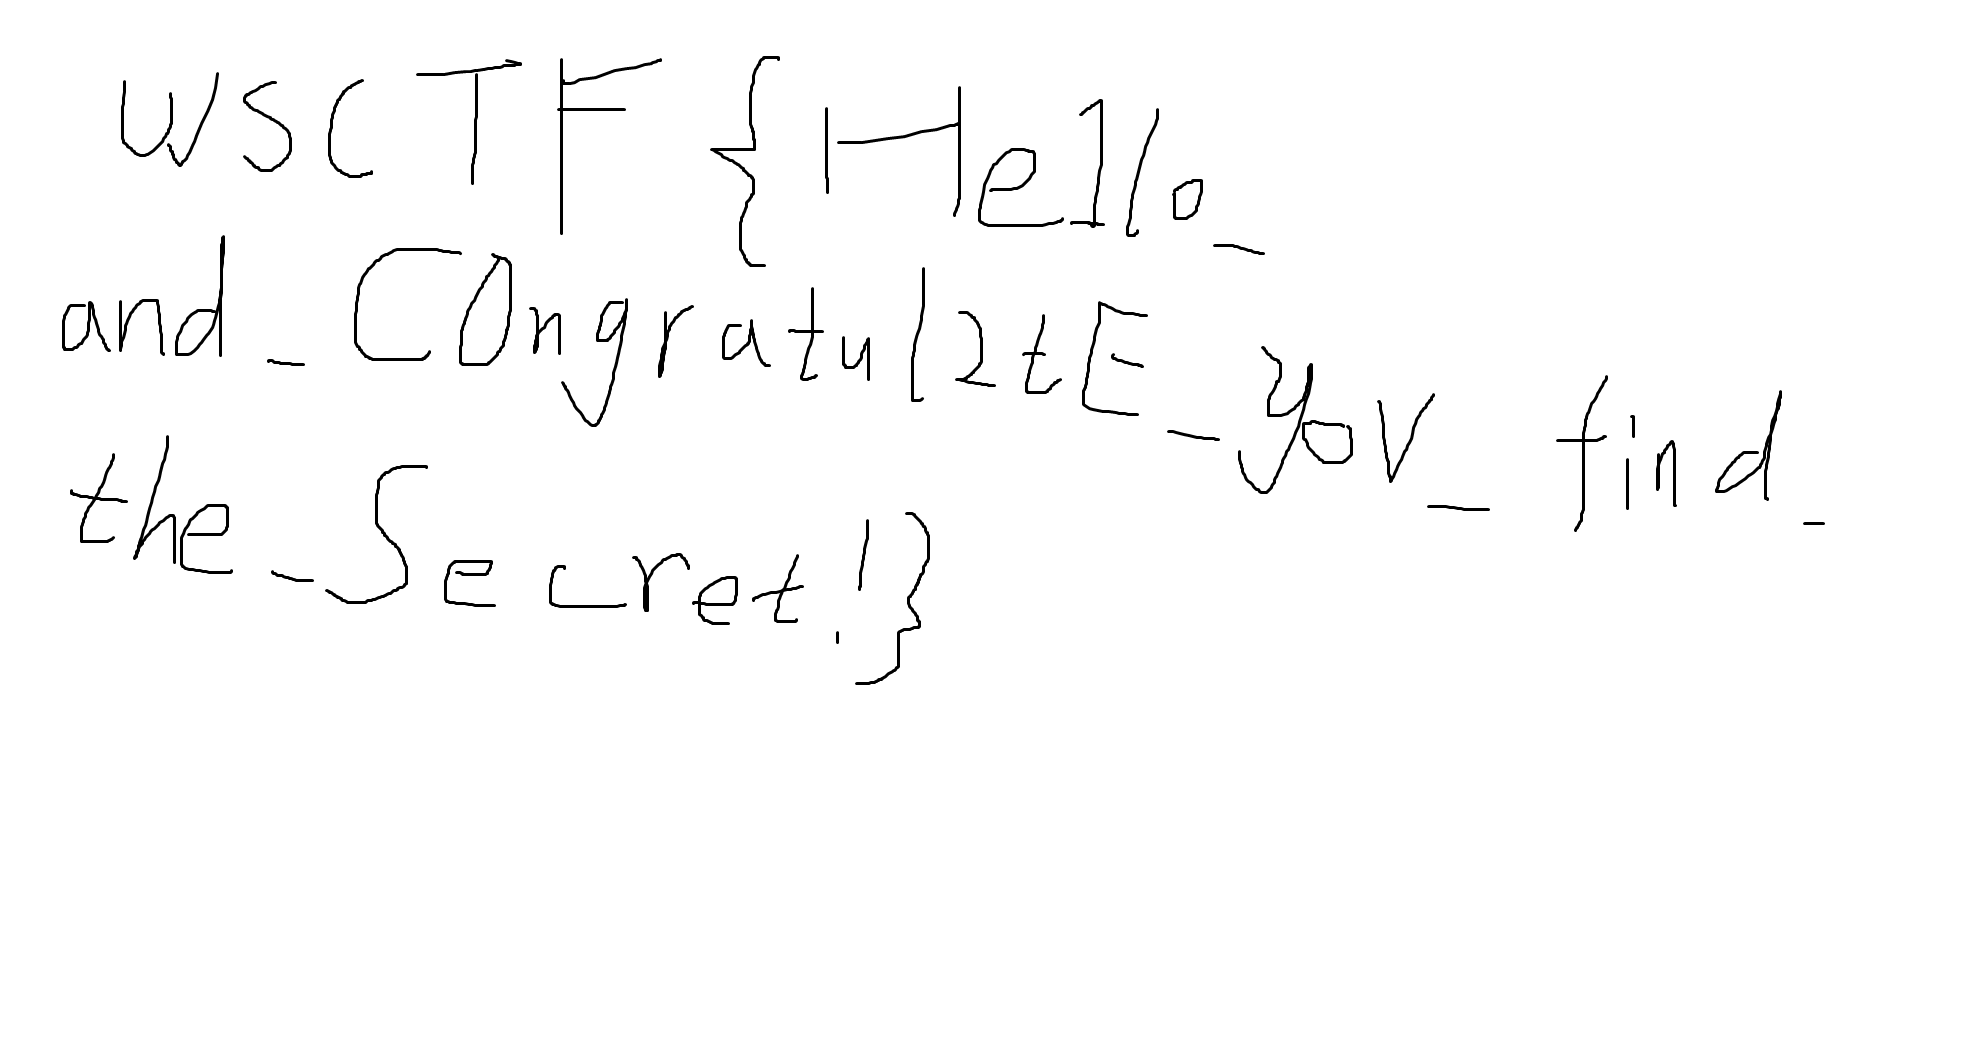 WSCTF{He1lo_
and_C0ngratul2tE_yov_find_
the_Secret!}